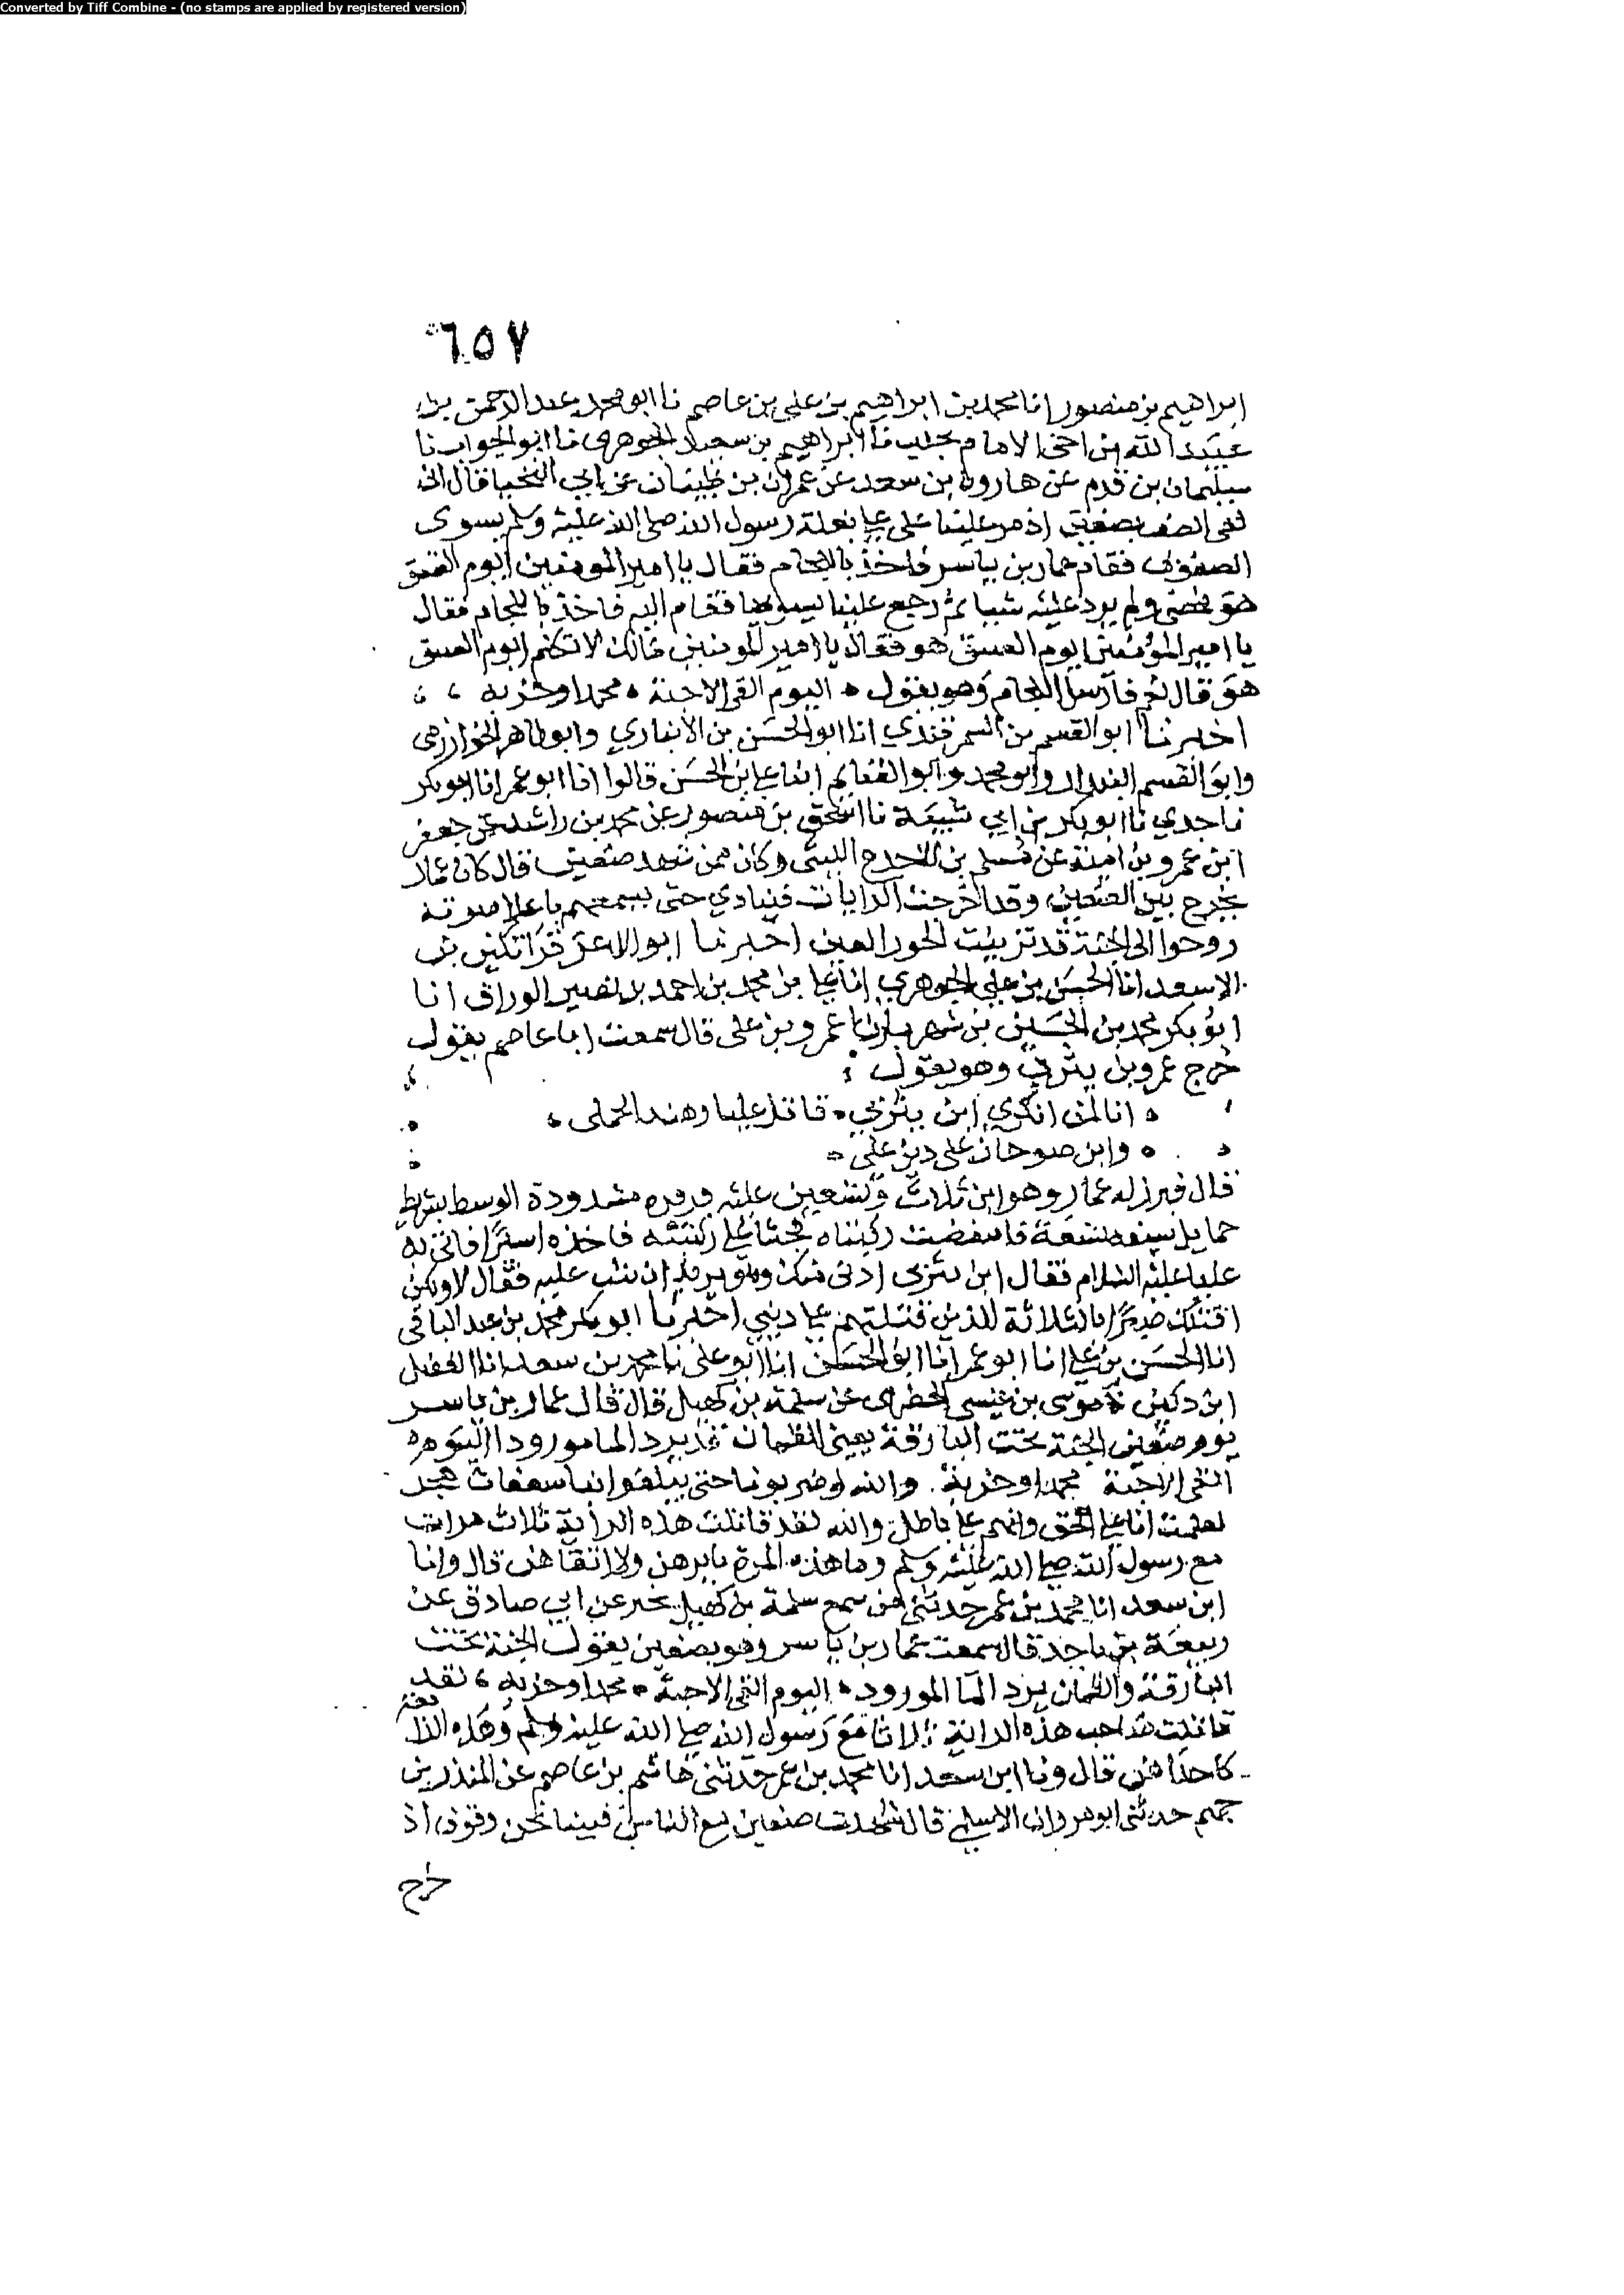 Converted by Tiff Combine - (no stamps are applied by registered version)
٦٥٧
ابراهيم بن منصور انا محمد بن ابراهيم بن علي بن عاصم نا ابو محمد عبد الرحمن بن
عبيد الله بن اخي الامام بحلب نا ابراهيم بن سعيد الجوهري نا ابو الجواب نا
سليمان بن قرم عن هارون بن سعد عن عمران بن ظبيان عن ابي قال اني
لفي الصف بصفين اذ مر علينا علي على بغلة رسول الله صلى الله عليه وسلم يسوي
الصفوف فقام عمار بن ياسر فاخذ بالجام فقال يا امير المومنين اليوم
هو فمضى ولم يرد عليه شيا ثم رجع علينا فقام اليه فاخذ باللجام فقال
يا امير المؤمنين اليوم هو فقال يا امير المومنين مالك لا تكلم اليوم
هو قال نعم فارسل اللجام وهو يقول ه اليوم القى الاحبة ه محمدا وحزبه
اخبرنا ابو القسم بن السمرقندي انا ابو الحسن بن الانباري وابو طاهر الخوارزمي
وابو القسم وابو محمد وابو الغنايم ابنا علي بن الحسن قالوا انا ابو عمر انا ابو بكر
نا جدي نا ابو بكر بن ابي شيبة نا اسحق بن منصور عن محمد بن راشد عن جعفر
ابن عمرو بن امية عن مسلم بن الاجدع الليثي وكان ممن شهد صفين قال كان عمار
يخرج بين الصفين وقد اخرجت الرايات فينادي حتى يسمعهم باعلا صوته
روحوا الى الجنة قد تزينت الحور العين اخبرنا ابو الاعز قراتكين بن
الاسعد انا الحسن بن علي الجوهري انا علي بن محمد بن احمد بن نصير الوراق انا
ابو بكر محمد بن الحسين بن شهريار نا عمرو بن علي قال سمعت ابا عاصم يقول
خرج عمرو بن يثربي وهو يقول
انا لمن انكرني ابن يثربي ه قاتل علبا وهند الجملي ه
ه وابن صوحان على دين علي ه
قال فبرز له عمار وهو ابن ثلاث وتسعين عليه مشدودة الوسط بشريط
حمايل سيفه فجثا على ركبتيه فاخذه اسيرا فاتى به
عليا عليه السلام فقال ابن يثربي ادني منك وهو يريد ان يثب عليه فقال لا ولكن
اقتلك صبرا بالثلاثة الذين قتلتهم على ديني اخبرنا ابو بكر محمد بن عبد الباقي
انا الحسن بن علي انا ابو عمر انا ابو الحسن انا ابو علي نا محمد بن سعد انا الفضل
ابن دكين نا موسى بن قيسي الحضرمي عن سلمة بن كهيل قال قال عمار بن ياسر
يوم صفين الجنة تحت البارقة يعني الظمان قد يرد الما مورودا اليوم ه
القى الاحبة محمدا وحزبه . والله لو ضربونا حتى يبلغوا بنا سعفات هجر
لعلمت انا على الحق وانهم على باطل والله لقد قاتلت هذه الراية ثلاث مرات
مع رسول الله صلى الله عليه وسلم وما هذه المرة بابرهن ولا اتقاهن قال وانا
ابن سعد انا محمد بن عمر حدثني من سمع سلمة بن كهيل يخبر عن ابي صادق عن
ربيعة بن ناجد قال سمعت عمار بن ياسر وهو بصفين يقول الجنة تحت
البارقة والظمان يرد الما المورود ه اليوم القى الاحبة ه محمدا وحزبه لقد
قاتلت صاحب هذه الراية ثلاثا مع رسول الله صلى الله عليه وسلم وهذه
كاحداهن قال ونا ابن سعد انا محمد بن عمر حدثني هاشم بن عاصم عن المنذر بن
جهم حدثني ابو مروان الاسلمي قال شهدت صفين مع الناس فبينا نحن وقوف اذ
خرج